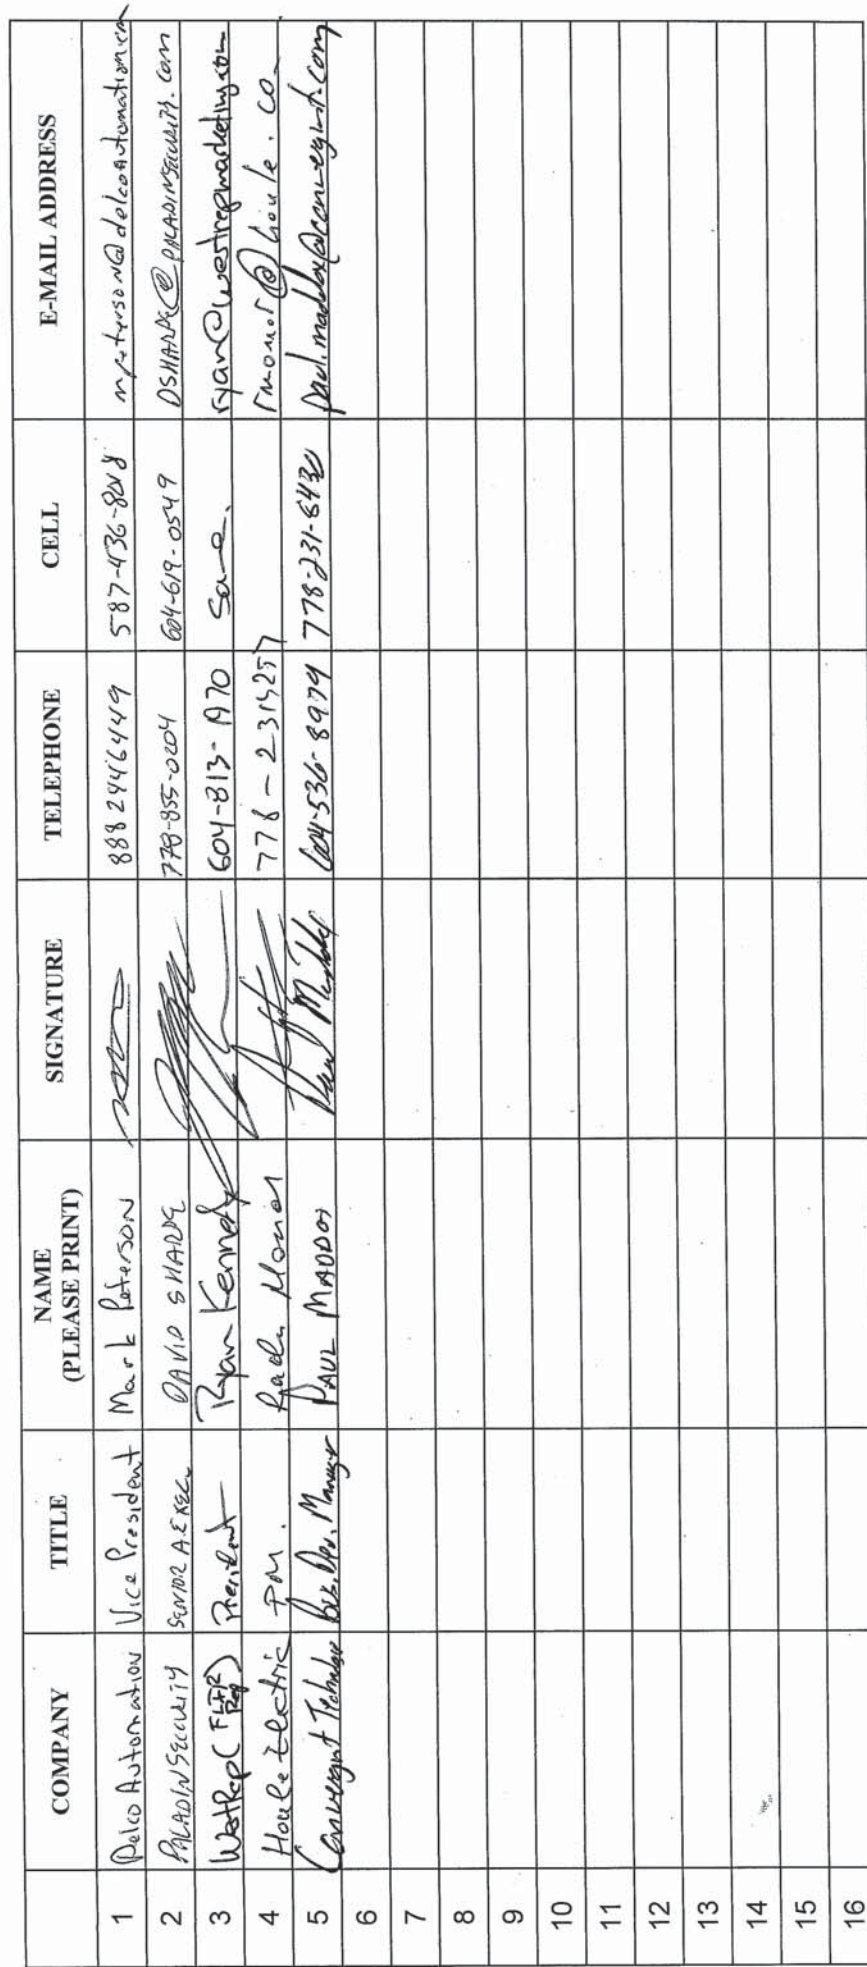 COMPANY TITLE NAME (PLEASE PRINT) SIGNATURE TELEPHONE CELL E-MAIL ADDRESS
1 Delco Automation Vice President Mark Peterson 888 2446449 587-436-8018 mpeterson@delcoautomation.com
2 PALADIN SECURITY SENIOR A. EXEC. DAVID SHARPE 778-855-0204 604-619-0549 DSHARPE@PALADINSECURITY.COM
3 WestRep (FLIR Rep) President Ryan Kennedy 604-813-1970 Same. ryan@westrepmarketing.com
4 Houle Electric PM. Radu 778-2314257 @houle.ca
5 Convergint Bus. Dev. Manager PAUL MADDOX Paul Maddox 604-536-8979 778-231-6430 paul.maddox@convergint.com
6
7
8
9
10
11
12
13
14
15
16